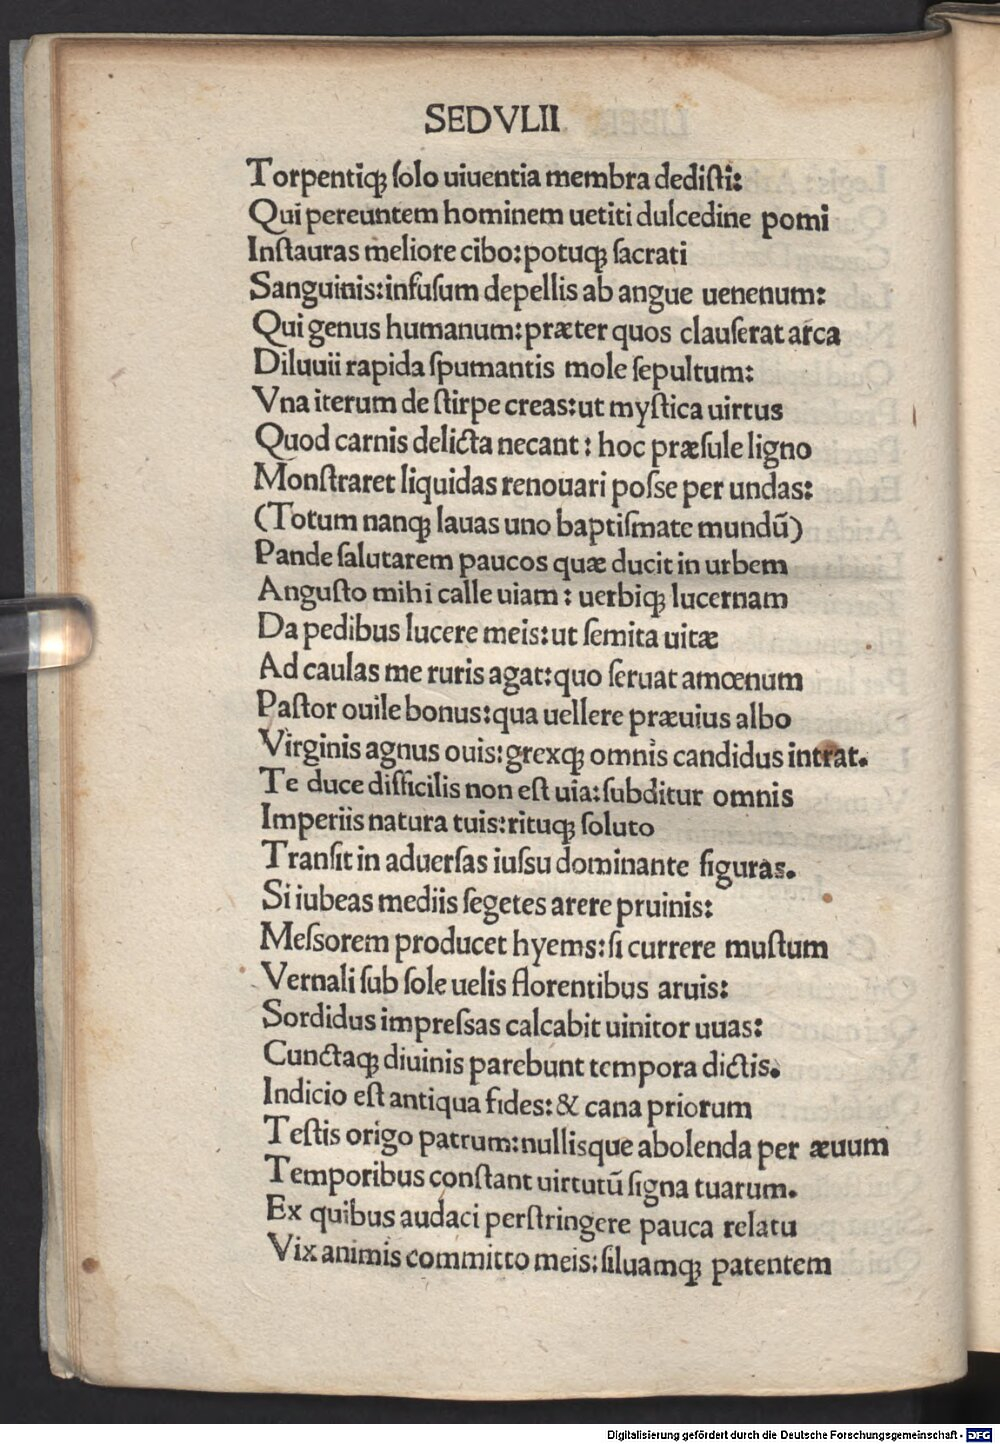 SEDVLII
Torpentiqꝫ ſolo uiuentia membra dediſti:
Qui pereuntem hominem uetiti dulcedine pomi
Inſtauras meliore cibo: potuqꝫ ſacrati
Sanguinis: infuſum depellis ab angue uenenum:
Qui genus humanum: præter quos clauſerat arca
Diluuii rapida ſpumantis mole ſepultum:
Vna iterum de ſtirpe creas: ut myſtica uirtus
Quod carnis delicta necant: hoc præſule ligno
Monſtraret liquidas renouari poſſe per undas:
(Totum nanqꝫ lauas uno baptiſmate mundū)
Pande ſalutarem paucos quæ ducit in urbem
Anguſto mihi calle uiam: uerbiqꝫ lucernam
Da pedibus lucere meis: ut ſemita uitæ
Ad caulas me ruris agat: quo ſeruat amœnum
Paſtor ouile bonus: qua uellere præuius albo
Virginis agnus ouis: grexqꝫ omnis candidus intrat.
Te duce difficilis non eſt uia: ſubditur omnis
Imperiis natura tuis: rituqꝫ ſoluto
Tranſit in aduerſas iuſſu dominante figuras.
Si iubeas mediis ſegetes arere pruinis:
Meſſorem producet hyems: ſi currere muſtum
Vernali ſub ſole uelis florentibus aruis:
Sordidus impreſſas calcabit uinitor uuas:
Cunctaqꝫ diuinis parebunt tempora dictis.
Indicio eſt antiqua fides: & cana priorum
Teſtis origo patrum: nullisque abolenda per æuum
Temporibus conſtant uirtutū ſigna tuarum.
Ex quibus audaci perſtringere pauca relatu
Vix animis committo meis: ſiluamqꝫ patentem
Digitalisierung gefördert durch die Deutsche Forschungsgemeinschaft - DFG